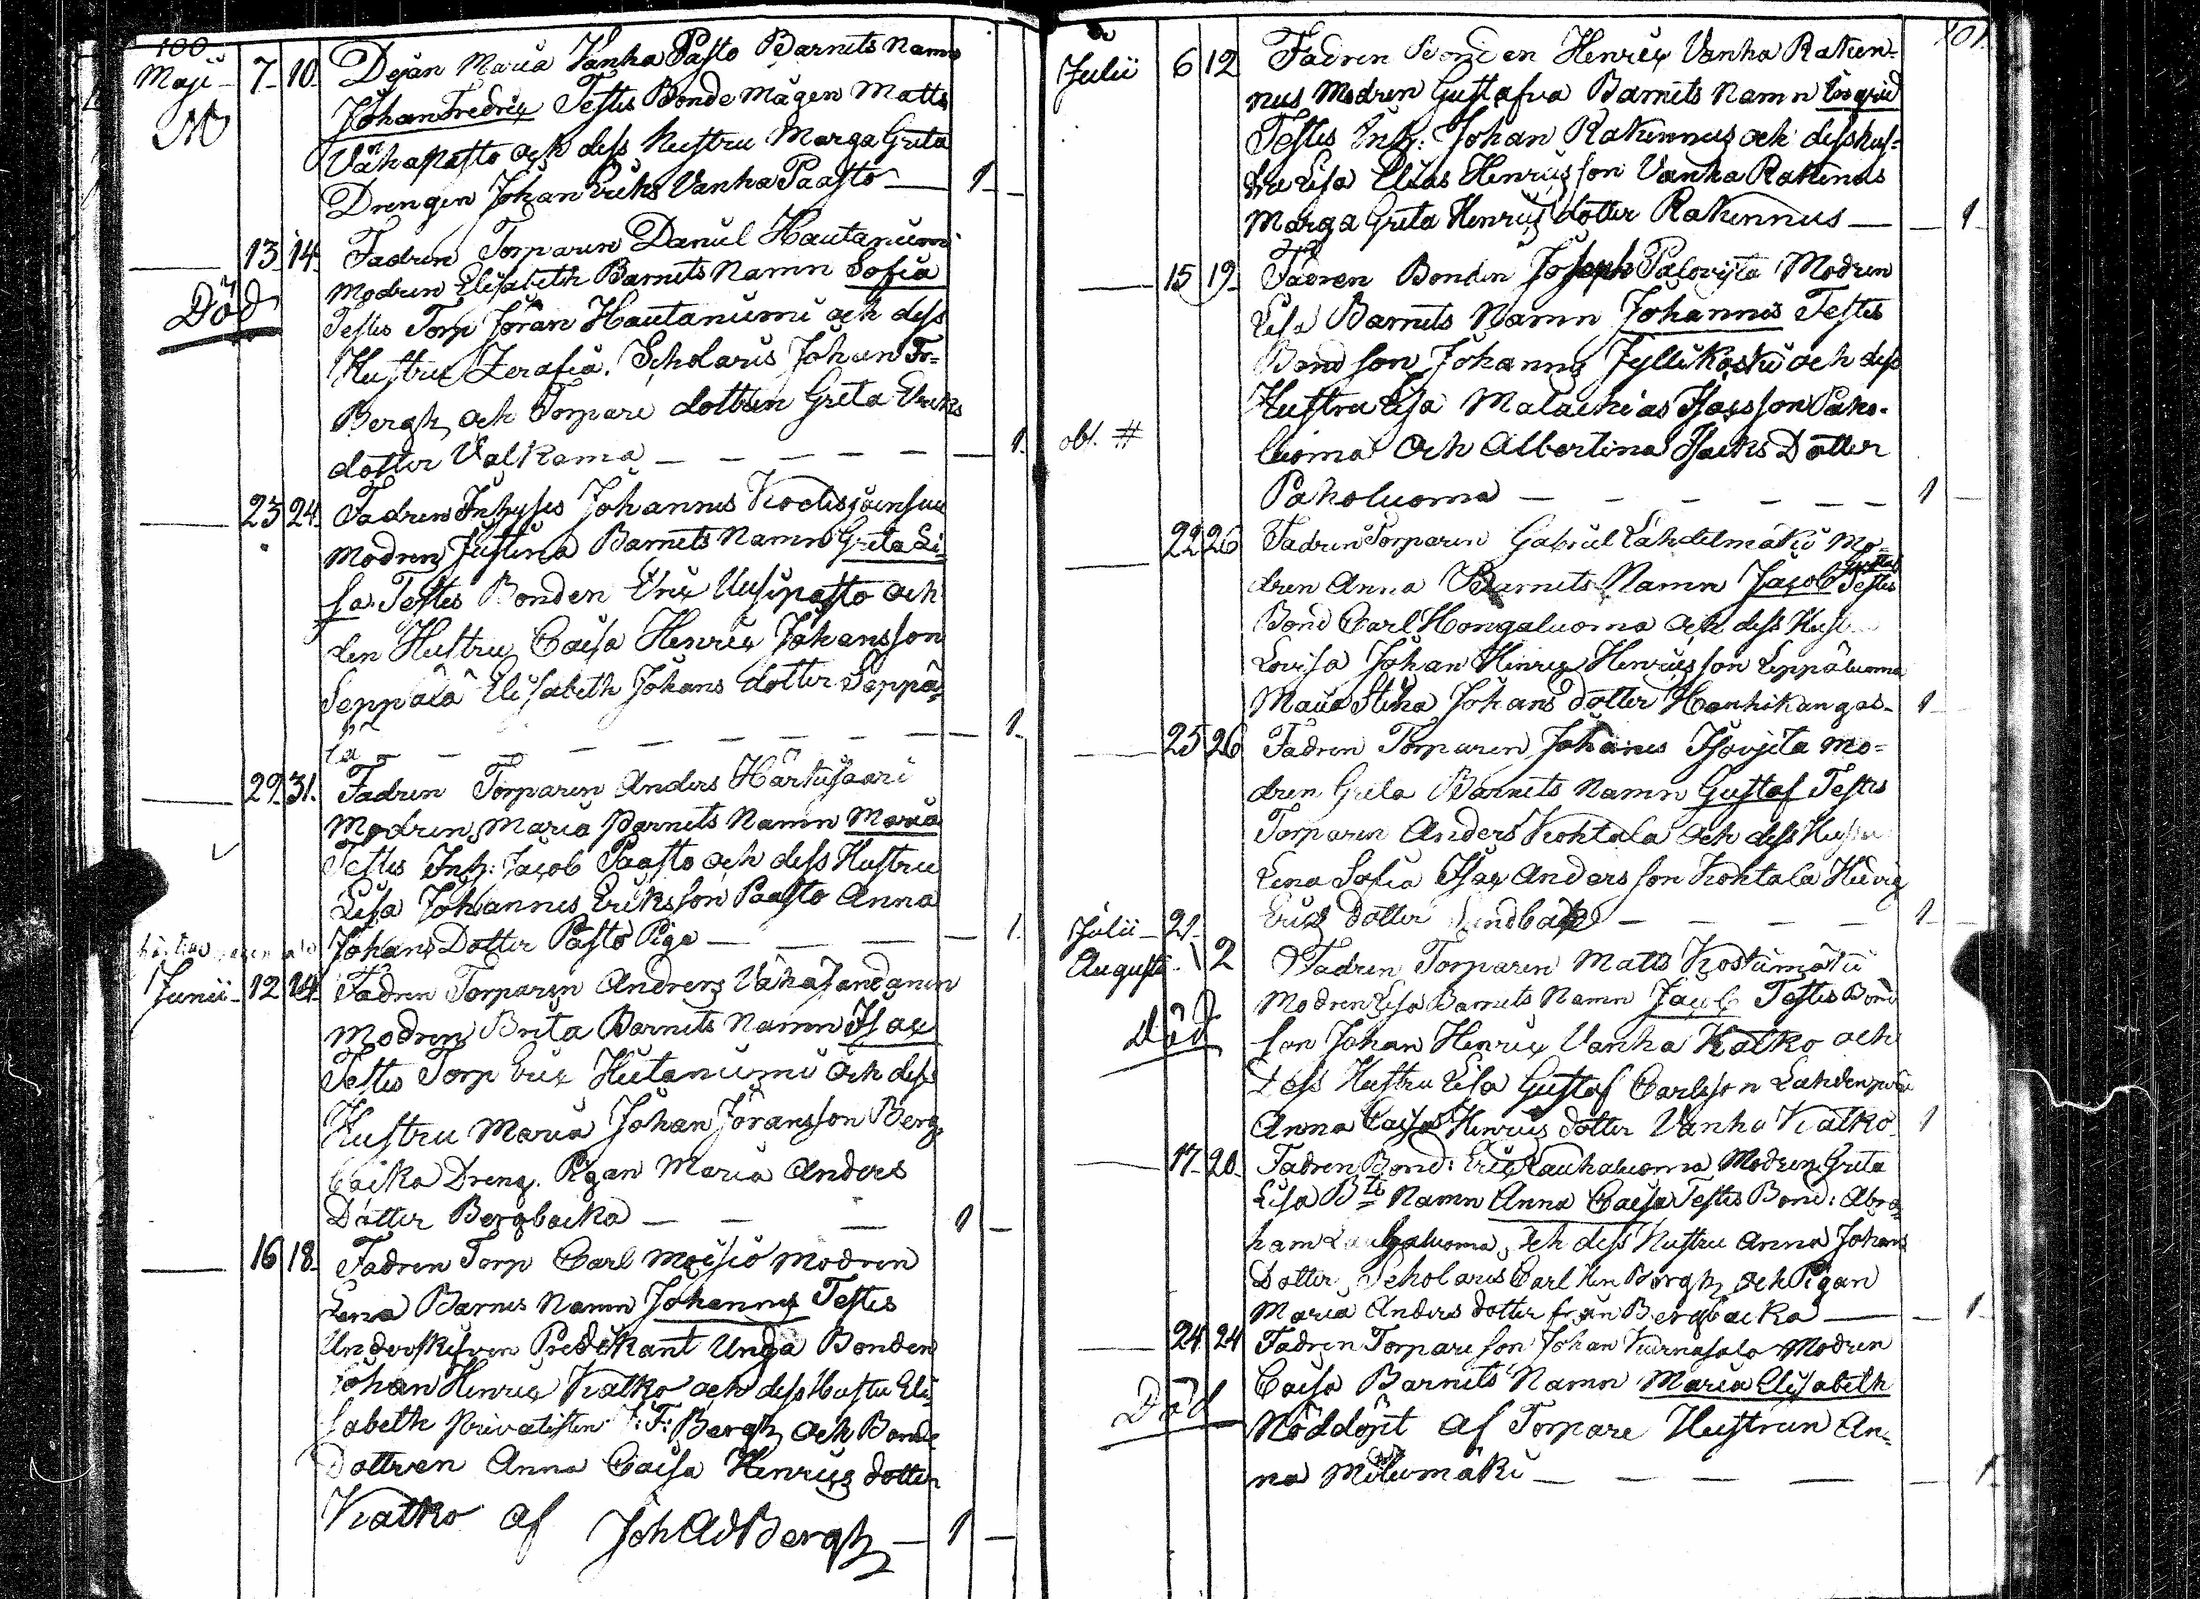 100
Maji 7 10 Dejan Maria Vanha Pasto Barnets namn
Johan Fredric Testes Bonde Mågen Matts
Vähapasto och dess Hustru Marga Greta
Drengen Johan Eriks Vanha Paasto — 1 —
— 13 14 Fadren Torparen Daniel Hautaniemi
Död
Modren Elisabeth Barnets Namn Sofia
Testes Torp Jöran Hautaniemi och dess
Hustru Zerafia. Scholaris Johan Fr-
Bergh och Torpare dottren Greta Eriks
dotter Valkama — — — — — — 1
— 23 24 Fadren Inhyses Johannes
Modren Justina Barnets Namn Greta Li-
sa Testes Bonden Eric Uusipasto och
den Hustru Caisa Henric Johansson
Seppälä Elisabeth Johans dotter Seppä-
lä — — — — — — — 1
— 29 31 Fadren Torparen Anders
Modren Maria Barnets Namn Maria
Testes Inh: Jacob Paasto och dess Hustru
Lisa Johannes Eriksson Paasto Anna
Johans Dotter Pasto Piga — — — 1
Junii 12 14 Fadren Torparen Anders
Modren Brita Barnets Namn Isac
Testes Torp Eric och dess
Hustru Maria Johan Jöransson Berg
backa Dreng. Pigan Maria Anders
Dotter Bergbacka — — — 1 —
— 16 18 Fadren Torp Carl Moisio Modren
Lena Barnes Namn Johannes Testes
Underskrefven Predikant Unga Bonden
Johan Henric Katko och dess Hustru Eli-
sabeth Privatisten J: F: Bergh och Bonde
Dottren Anna Caisa Henrics dotter
Katko af Joh Ad Bergh — 1 —
101
Julii 6 12 Fadren Bonden Henric Vanha Raken-
nus Modren Gustafva Barnets Namn Ingrid
Testes Inh: Johan Rakennus och dess hus-
tru Lisa Elias Henricsson Vanha Rakenus
Marga Greta Henrics dotter Rakennus — — 1
— 15 19 Fadren Bonden Joseph Palovista Modren
Lisa Barnets Namn Johannes Testes
Bond Son Johannes Jyllikoski och dess
Hustru Lisa Malachias Isacsson Paho-
obt. #
luoma och Albertina Isacks Dotter
Paholuoma — — — — — — 1 —
— 22 26 Fadren Torparen Gabriel Lahdelmäki Mo-
dren Anna Barnets Namn Jacob Testes
Bond Carl Hongaluoma och dess Hust
Lovisa Johan Henric Henricsson Leppäluoma
Maria Stina Johans Dotter Hanhikangas — 1
— 25 26 Fadren Torparen Johanes Mo-
dren Greta Barnets Namn Gustaf Testes
Torparen Anders Kohtala och dess Hustru
Lena Sofia Isac Andersson Kohtala Hedvig
Erics dotter — — — — 1 —
Julii 21
Augusti 2 Fadren Torparen Matts Koskimäki
Modren Lisa Barnets Namn Jacob Testes Bond
Död
son Johan Henric Vanha Katko och
dess Hustru Lisa Gustaf Carlsson
Anna Caisa Henrics dotter Vanha Katko 1
— 17 20 Fadren Bond: Eric Lauhaluoma Modren Greta
Lisa Bts Namn Anna Caisa Testes Bond: Abra-
ham och dess Hustru Anna Johans
Dotter Scholaris Carl Hen Bergh och Pigan
Maria Anders dotter från Bergbacka — — 1
— 24 24 Fadren Torpare son Johan Modren
Caisa Barnets Namn Maria Elisabeth
Död
Nöddöpt af Torpare Hustrun An-
na — — — — — 1